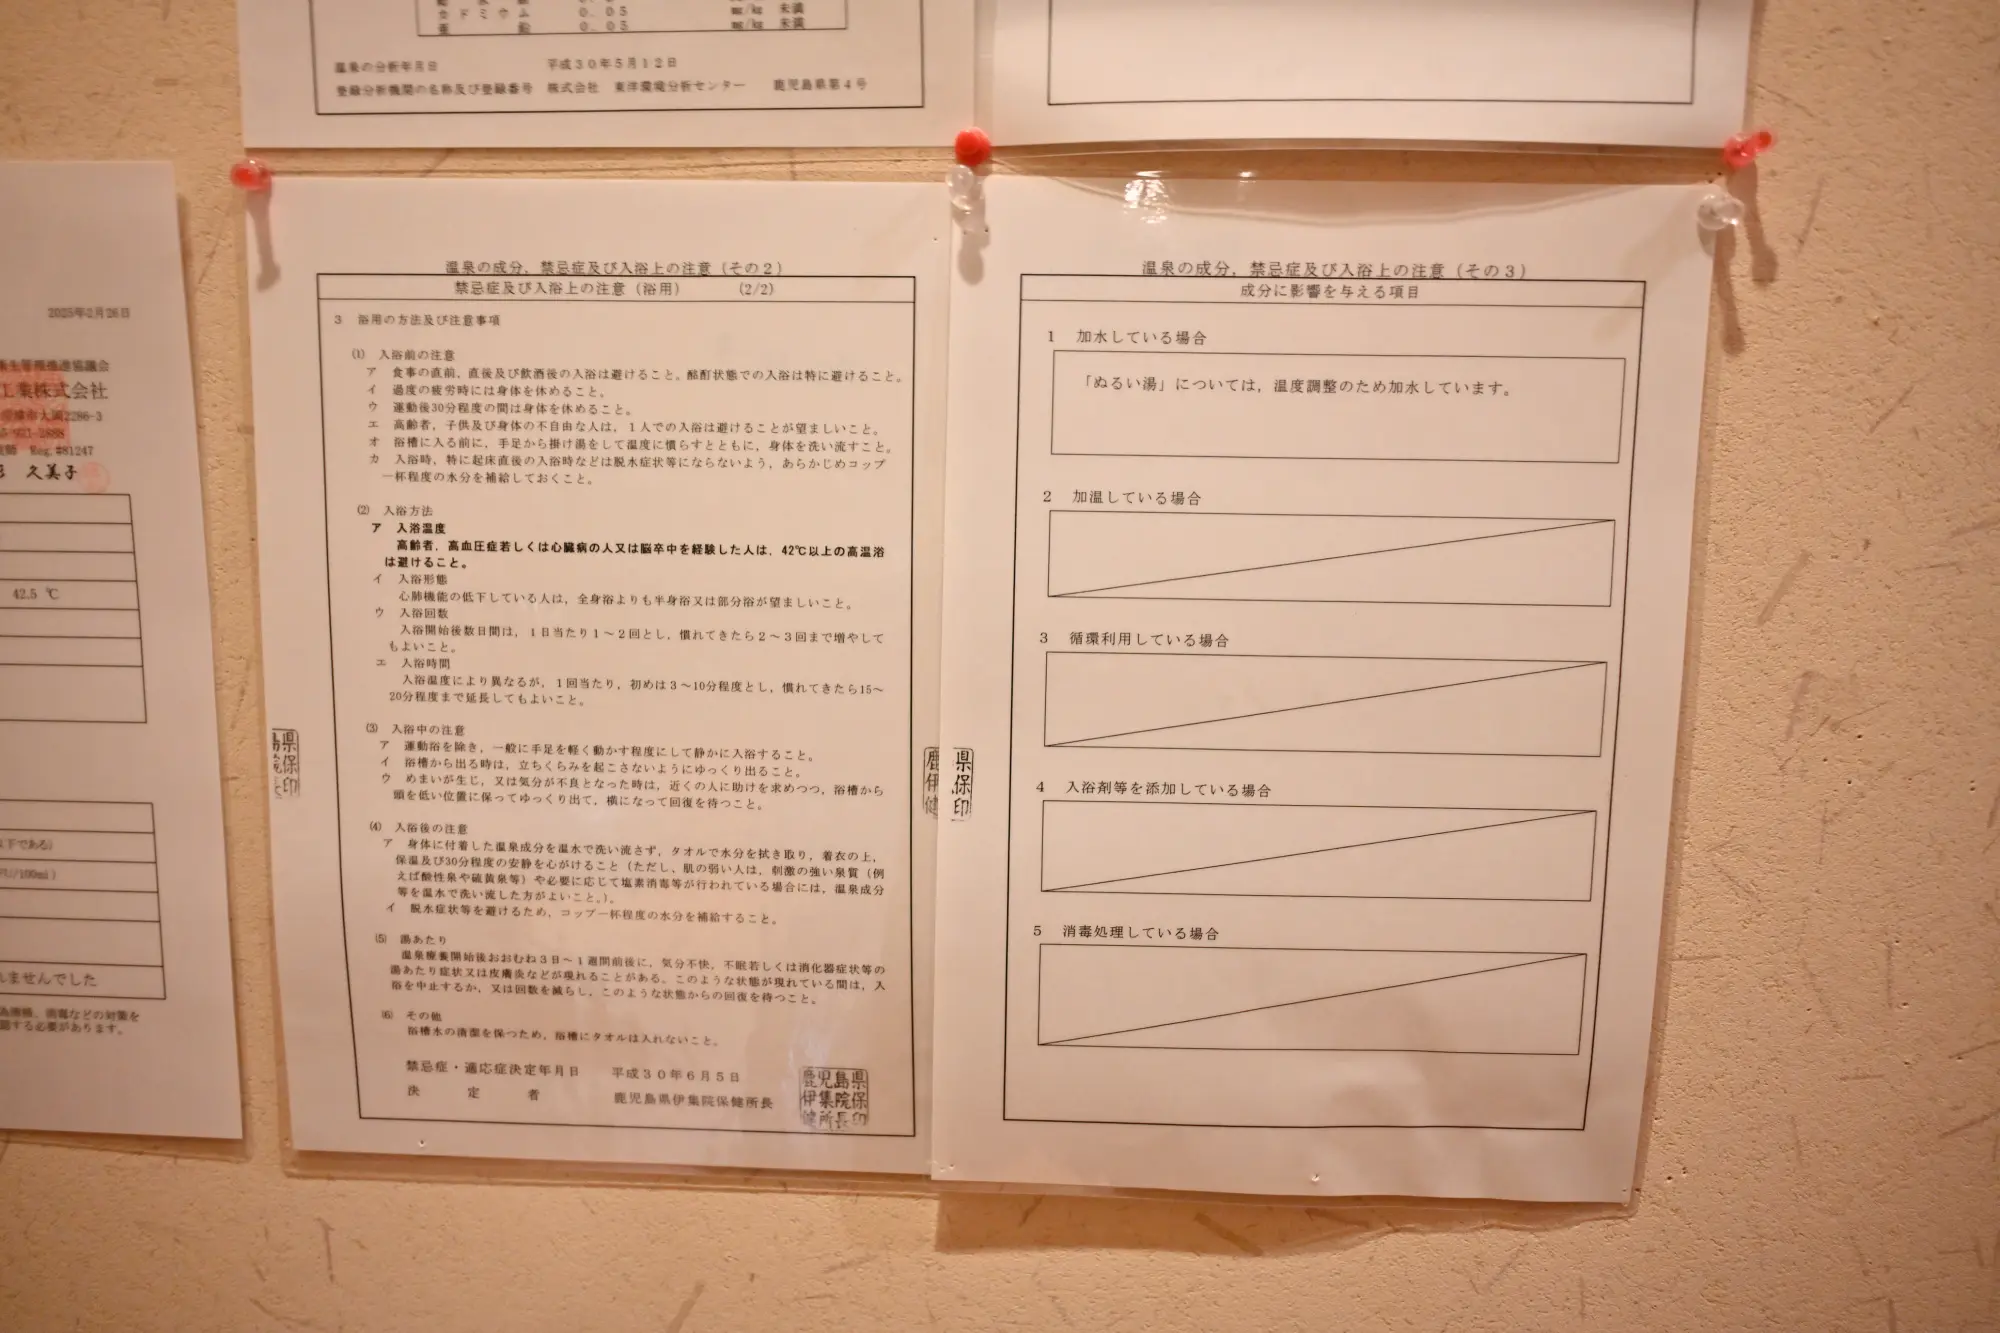 カドミウム 0.05 mg/kg 未満
亜鉛 0.05 mg/kg 未満
温泉の分析年月日 平成30年5月12日
登録分析機関の名称及び登録番号 株式会社 東洋環境分析センター 鹿児島県第4号
2025年2月26日
工業株式会社
Reg.#81247
久美子
42.5 ℃
下である)
/100ml)
ませんでした
消毒などの対策を
する必要があります。
温泉の成分,禁忌症及び入浴上の注意(その2)
禁忌症及び入浴上の注意(浴用) (2/2)
3 浴用の方法及び注意事項
(1) 入浴前の注意
ア 食事の直前、直後及び飲酒後の入浴は避けること。酩酊状態での入浴は特に避けること。
イ 過度の疲労時には身体を休めること。
ウ 運動後30分程度の間は身体を休めること。
エ 高齢者,子供及び身体の不自由な人は,1人での入浴は避けることが望ましいこと。
オ 浴槽に入る前に,手足から掛け湯をして温度に慣らすとともに,身体を洗い流すこと。
カ 入浴時,特に起床直後の入浴時などは脱水症状等にならないよう,あらかじめコップ
一杯程度の水分を補給しておくこと。
(2) 入浴方法
ア 入浴温度
高齢者,高血圧症若しくは心臓病の人又は脳卒中を経験した人は,42℃以上の高温浴
は避けること。
イ 入浴形態
心肺機能の低下している人は,全身浴よりも半身浴又は部分浴が望ましいこと。
ウ 入浴回数
入浴開始後数日間は,1日当たり1~2回とし,慣れてきたら2~3回まで増やして
もよいこと。
エ 入浴時間
入浴温度により異なるが,1回当たり,初めは3~10分程度とし,慣れてきたら15~
20分程度まで延長してもよいこと。
(3) 入浴中の注意
ア 運動浴を除き,一般に手足を軽く動かす程度にして静かに入浴すること。
イ 浴槽から出る時は,立ちくらみを起こさないようにゆっくり出ること。
ウ めまいが生じ,又は気分が不良となった時は,近くの人に助けを求めつつ,浴槽から
頭を低い位置に保ってゆっくり出て,横になって回復を待つこと。
(4) 入浴後の注意
ア 身体に付着した温泉成分を温水で洗い流さず,タオルで水分を拭き取り,着衣の上,
保温及び30分程度の安静を心がけること(ただし、肌の弱い人は,刺激の強い泉質(例
えば酸性泉や硫黄泉等)や必要に応じて塩素消毒等が行われている場合には,温泉成分
等を温水で洗い流した方がよいこと。)。
イ 脱水症状等を避けるため,コップ一杯程度の水分を補給すること。
(5) 湯あたり
温泉療養開始後おおむね3日~1週間前後に,気分不快,不眠若しくは消化器症状等の
湯あたり症状又は皮膚炎などが現れることがある。このような状態が現れている間は,入
浴を中止するか,又は回数を減らし,このような状態からの回復を待つこと。
(6) その他
浴槽水の清潔を保つため,浴槽にタオルは入れないこと。
禁忌症・適応症決定年月日 平成30年6月5日
決定者 鹿児島県伊集院保健所長
鹿児島県
伊集院保
健所長印
温泉の成分,禁忌症及び入浴上の注意(その3)
成分に影響を与える項目
1 加水している場合
「ぬるい湯」については,温度調整のため加水しています。
2 加温している場合
3 循環利用している場合
4 入浴剤等を添加している場合
5 消毒処理している場合